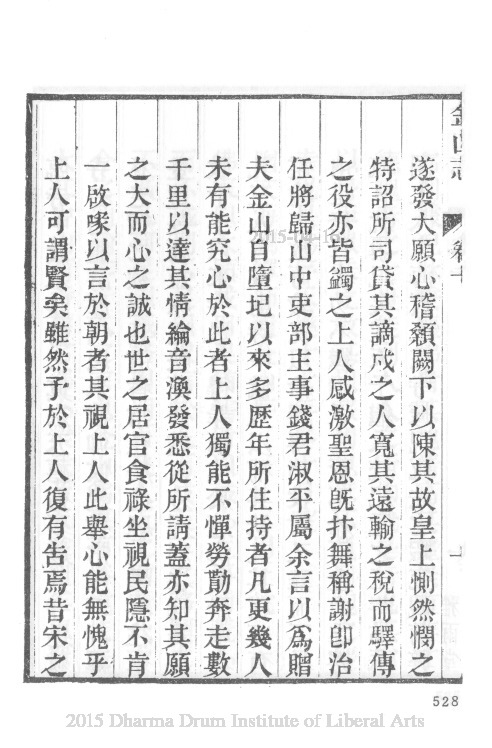 金山志
卷十
遂發大願心稽顙闕下以陳其故皇上惻然憫之
特詔所司貸其謫戍之人寬其遠輸之稅而驛傳
之役亦皆蠲之上人感激聖恩旣抃舞稱謝卽治
任將歸山中吏部主事錢君淑平屬余言以爲贈
夫金山自墮圮以來多歷年所住持者凡更幾人
未有能究心於此者上人獨能不憚勞勩奔走數
千里以達其情綸音渙發悉從所請蓋亦知其願
之大而心之誠也世之居官食祿坐視民隱不肯
一啟喙以言於朝者其視上人此舉心能無愧乎
上人可謂賢矣雖然予於上人復有告焉昔宋之
528
2015 Dharma Drum Institute of Liberal Arts